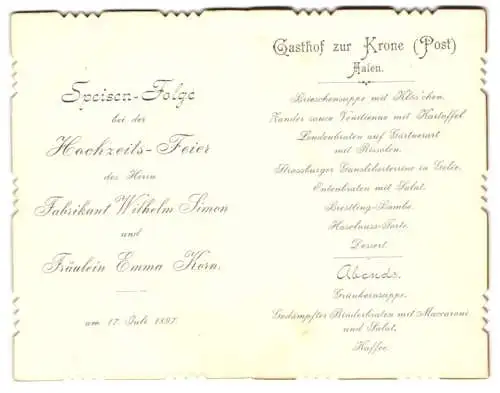 Speisen-Folge
bei der
Hochzeits-Feier
des Herrn
Fabrikant Wilhelm Simon
und
Fräulein Emma Korn.
am 17. Juli 1897.
Gasthof zur Krone (Post)
Aalen.
Brieschensuppe mit Klös'chen.
Zander sauce Venitienne mit Kartoffel
Lendenbraten auf Gärtnerart
mit Rissolen.
Strassburger Gansleberterrine in Gelée.
Entenbraten mit Salat.
Brestling-Bombe.
Haselnuss-Torte.
Dessert.
Abends.
Grünkernsuppe.
Gedämpfter Rinderbraten mit Maccaroni
und Salat.
Kaffee.